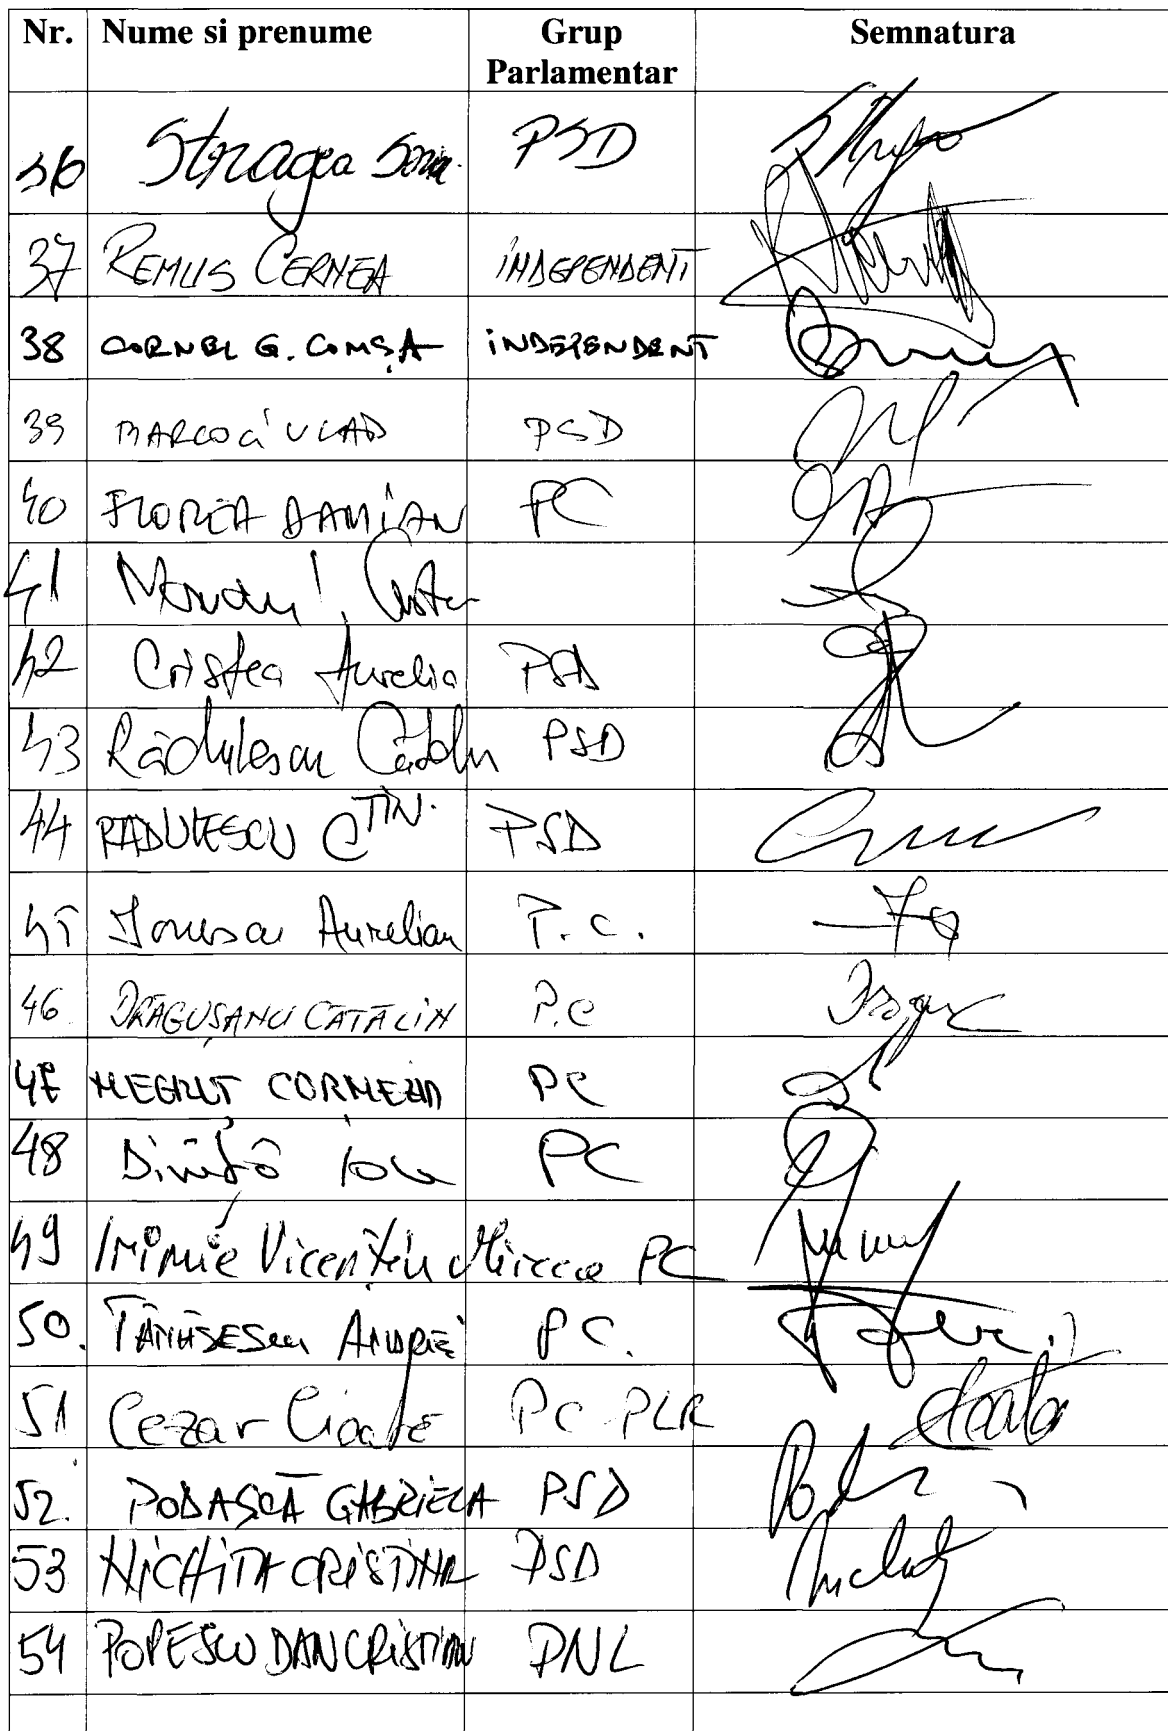 Nr. Nume si prenume Grup Parlamentar Semnatura
36 Stragea Sorin PSD
37 REMUS CERNEA INDEPENDENT
38 CORNEL G. COMȘA INDEPENDENT
39 MARCOCI VLAD PSD
40 FLOREA DAMIAN PC
41
42 Cristea Aurelia PSD
43 Rădulescu Cătălin PSD
44 RADULESCU CTIN. PSD
45 Ionescu Aurelian P.C.
46 DRĂGUȘANU CĂTĂLIN P.C
47 NEGRUȚ CORNELIU PC
48 Diniță Ion PC
49 Irimie Vicențiu Mircea PC
50. TĂNĂSESCU ANDREI PC.
51 Cezar Cioată PC-PLR
52. PODAȘCĂ GABRIELA PSD
53 NICHITA CRISTINA PSD
54 POPESCU DAN CRISTIAN PNL